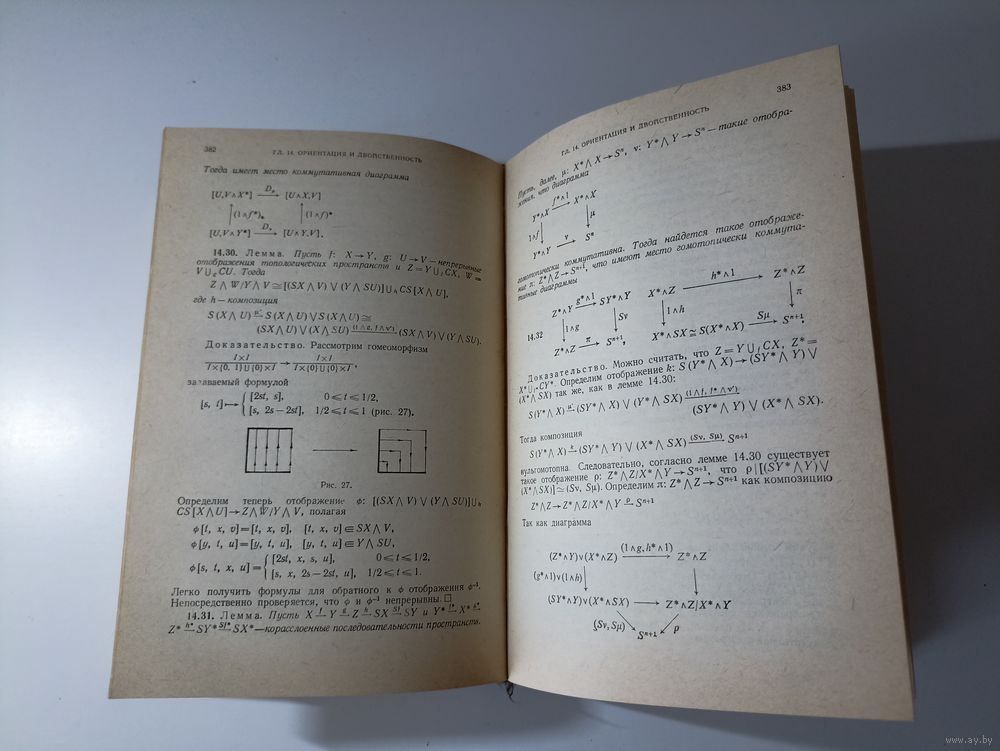 382
ГЛ. 14. ОРИЕНТАЦИЯ И ДВОЙСТВЕННОСТЬ
Тогда имеет место коммутативная диаграмма
[U, V∧X*] → [U∧X, V]
(1∧f*)* (1∧f)*
[U, V∧Y*] → [U∧Y, V].
14.30. Лемма. Пусть f: X → Y, g: U → V — непрерывные
отображения топологических пространств и Z = Y ∪f CX, W =
V ∪g CU. Тогда
Z ∧ W/Y ∧ V ≃ [(SX ∧ V) ∨ (Y ∧ SU)] ∪h CS [X ∧ U],
где h — композиция
S (X ∧ U) → S (X ∧ U) ∨ S (X ∧ U) ≃
(SX ∧ U) ∨ (X ∧ SU) → (SX ∧ V) ∨ (Y ∧ SU).
Доказательство. Рассмотрим гомеоморфизм
I×I / I×{0, 1}∪{0}×I → I×I / I×{0}∪{0}×I,
задаваемый формулой
[s, t] ↦ { [2st, s], 0 ⩽ t ⩽ 1/2,
[s, 2s − 2st], 1/2 ⩽ t ⩽ 1 (рис. 27).
Рис. 27.
Определим теперь отображение φ: [(SX ∧ V) ∨ (Y ∧ SU)] ∪h
CS [X ∧ U] → Z ∧ W/Y ∧ V, полагая
φ [t, x, v] = [t, x, v], [t, x, v] ∈ SX ∧ V,
φ [y, t, u] = [y, t, u], [y, t, u] ∈ Y ∧ SU,
φ [s, t, x, u] = { [2st, x, s, u], 0 ⩽ t ⩽ 1/2,
[s, x, 2s − 2st, u], 1/2 ⩽ t ⩽ 1.
Легко получить формулы для обратного к φ отображения φ⁻¹.
Непосредственно проверяется, что φ и φ⁻¹ непрерывны. □
14.31. Лемма. Пусть X →f Y →g Z →h SX →Sf SY и Y* →f* X* →g*
Z* →h* SY* →Sf* SX* — корасслоенные последовательности пространств.
383
ГЛ. 14. ОРИЕНТАЦИЯ И ДВОЙСТВЕННОСТЬ
Пусть, далее, μ: X* ∧ X → Sⁿ, ν: Y* ∧ Y → Sⁿ — такие отобра-
жения, что диаграмма
Y*∧X →f*∧1 X*∧X
1∧f μ
Y*∧Y →ν Sⁿ
гомотопически коммутативна. Тогда найдется такое отображе-
ние π: Z* ∧ Z → Sⁿ⁺¹, что имеют место гомотопически коммута-
тивные диаграммы
Z*∧Y →g*∧1 SY*∧Y X*∧Z →h*∧1 Z*∧Z
14.32 1∧g Sν 1∧h π
Z*∧Z →π Sⁿ⁺¹, X*∧SX ≃ S(X*∧X) →Sμ Sⁿ⁺¹.
Доказательство. Можно считать, что Z = Y ∪f CX, Z* =
X* ∪f* CY*. Определим отображение k: S (Y* ∧ X) → (SY* ∧ Y) ∨
(X* ∧ SX) так же, как в лемме 14.30:
S (Y* ∧ X) → (SY* ∧ X) ∨ (Y* ∧ SX) →
(SY* ∧ Y) ∨ (X* ∧ SX).
Тогда композиция
S (Y* ∧ X) →k (SY* ∧ Y) ∨ (X* ∧ SX) →(Sν, Sμ) Sⁿ⁺¹
нульгомотопна. Следовательно, согласно лемме 14.30 существует
такое отображение ρ: Z* ∧ Z/X* ∧ Y → Sⁿ⁺¹, что ρ | [(SY* ∧ Y) ∨
(X* ∧ SX)] ≃ (Sν, Sμ). Определим π: Z* ∧ Z → Sⁿ⁺¹ как композицию
Z* ∧ Z → Z* ∧ Z/X* ∧ Y →ρ Sⁿ⁺¹
Так как диаграмма
(Z*∧Y)∨(X*∧Z) →(1∧g, h*∧1) Z*∧Z
(g*∧1)∨(1∧h)
(SY*∧Y)∨(X*∧SX) → Z*∧Z/X*∧Y
(Sν, Sμ) Sⁿ⁺¹ ρ
www.ay.by